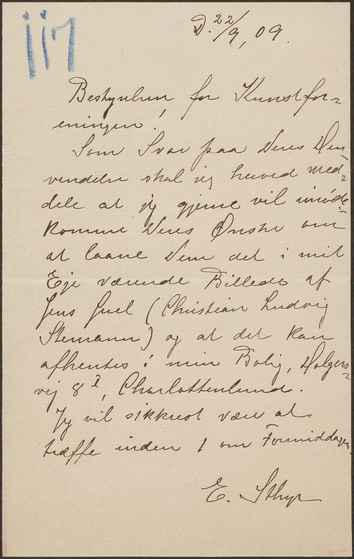 117
D. 22/9, 09.
Bestyrelsen for Kunstfor=
eningen!
Som Svar paa Deres Hen=
vendelse skal jeg herved med=
dele at jeg gjerne vil imøde=
komme Deres Ønske om
at laane Dem det i mit
Eje værende Billede af
Jens Juel (Christian Ludvig
Stemann) og at det kan
afhentes i min Bolig, Holgers=
vej 8 I, Charlottenlund.
Jeg vil sikkrest være at
træffe inden 1 om Formiddagen.
E. Sthyr